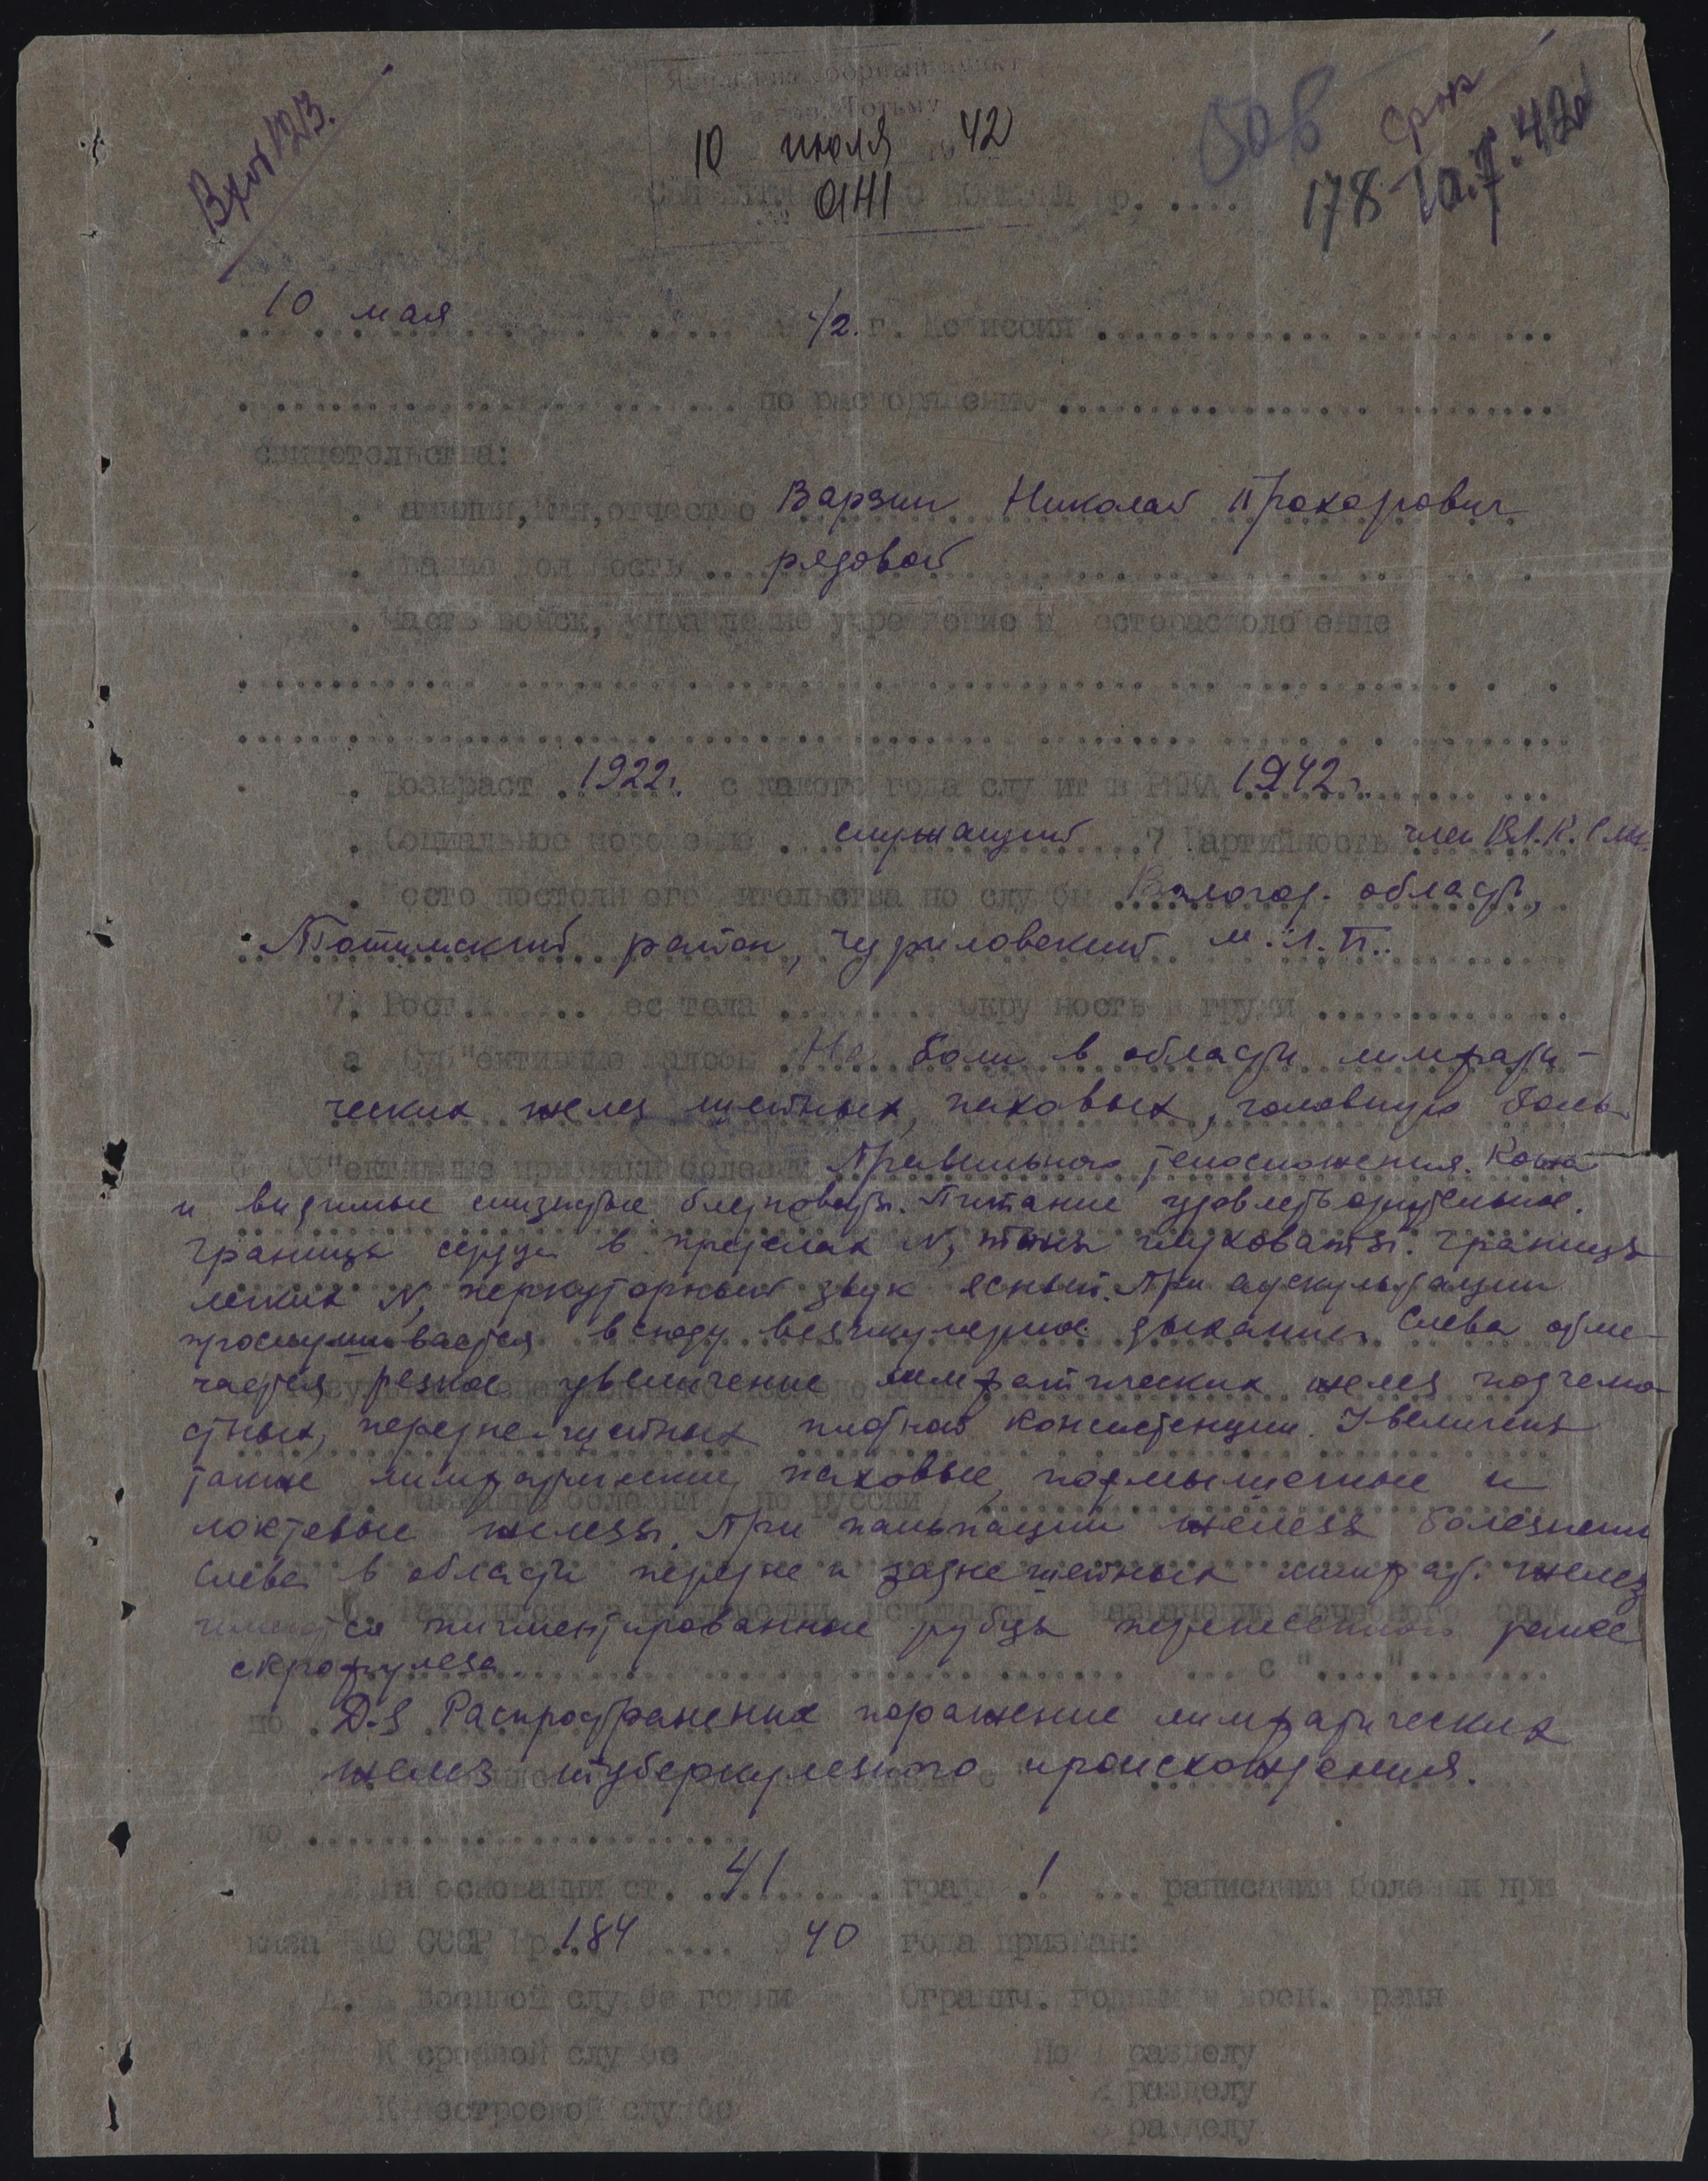 Вход 123.
сборный пункт
10 июля 42
0141
178
Срок
10.7.42
10 мая 42. г. Комиссия
по распоряжению
свидетельства:
фамилия, имя, отчество Варзин Николай Прохорович
рядовой
Часть войск, управление учреждение и месторасположение
Возраст 1922 г. с какого года служит в РККА 1942 г.
Социальное положение служащий 7 Партийность член В.Л.К.С.М.
Место постоянного жительства по службы Вологод. область,
Тотемский район, Чуриловский м.л.п.
7. Рост вес тела окружность груди
а Субъективные жалобы На боли в области лимфати-
ческих желез шейных, паховых, головную боль
б Объективные признаки болезни Правильного телосложения. Кожа
и видимые слизистые бледноваты. Питание удовлетворительное.
Границы сердца в пределах N, тоны глуховаты. Границы
легких N, перкуторный звук ясный. При аускультации
прослушивается всюду везикулярное дыхание. Слева отме-
чается резкое увеличение лимфатических желез подчелю-
стных, передне-шейных плотной консистенции. Увеличены
также лимфатические паховые, подмышечные и
локтевые железы. При пальпации железы болезнены
Слева в области передне и заднешейных лимфат. желез
имеются пигментированные рубцы перенесенного ранее
скрофулеза
с "...."
по D.S Распространенное поражение лимфатических
желез туберкулезного происхождения.
по
На основании ст. 41 граф 1 расписания болезни при
каза НКО СССР Нр. 184 40 года признан:
К военной службе годен Огранич. годным в воен. время
К строевой службе По 1 разделу
2 разделу
К нестроевой службе 3 разделу